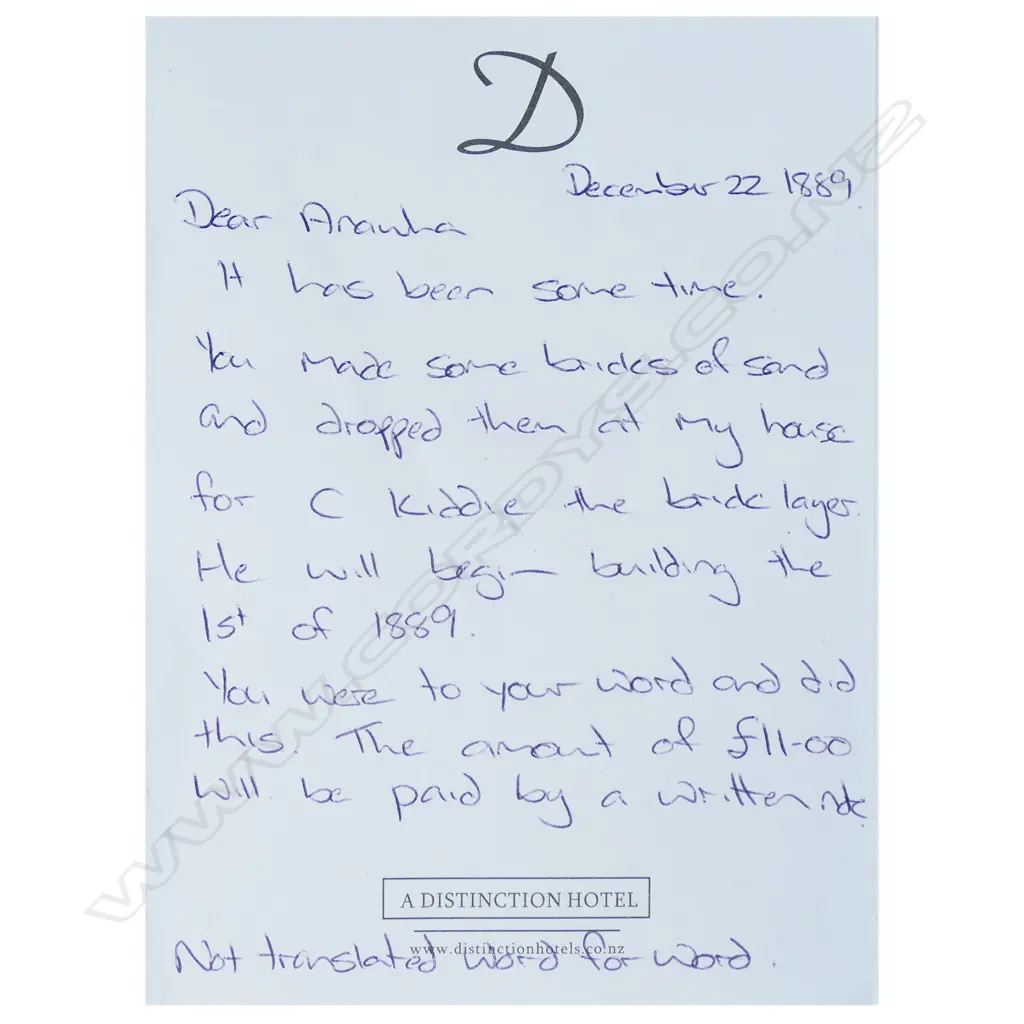 D
December 22 1889.
Dear Arawha
It has been some time.
You made some bricks of sand
and dropped them at my house
for C Kiddie the brick layer.
He will begin building the
1st of 1889.
You were to your word and did
this. The amount of £11-00
will be paid by a written note.
A DISTINCTION HOTEL
www.distinctionhotels.co.nz
Not translated word for word.
WWW.CORDYS.CO.NZ